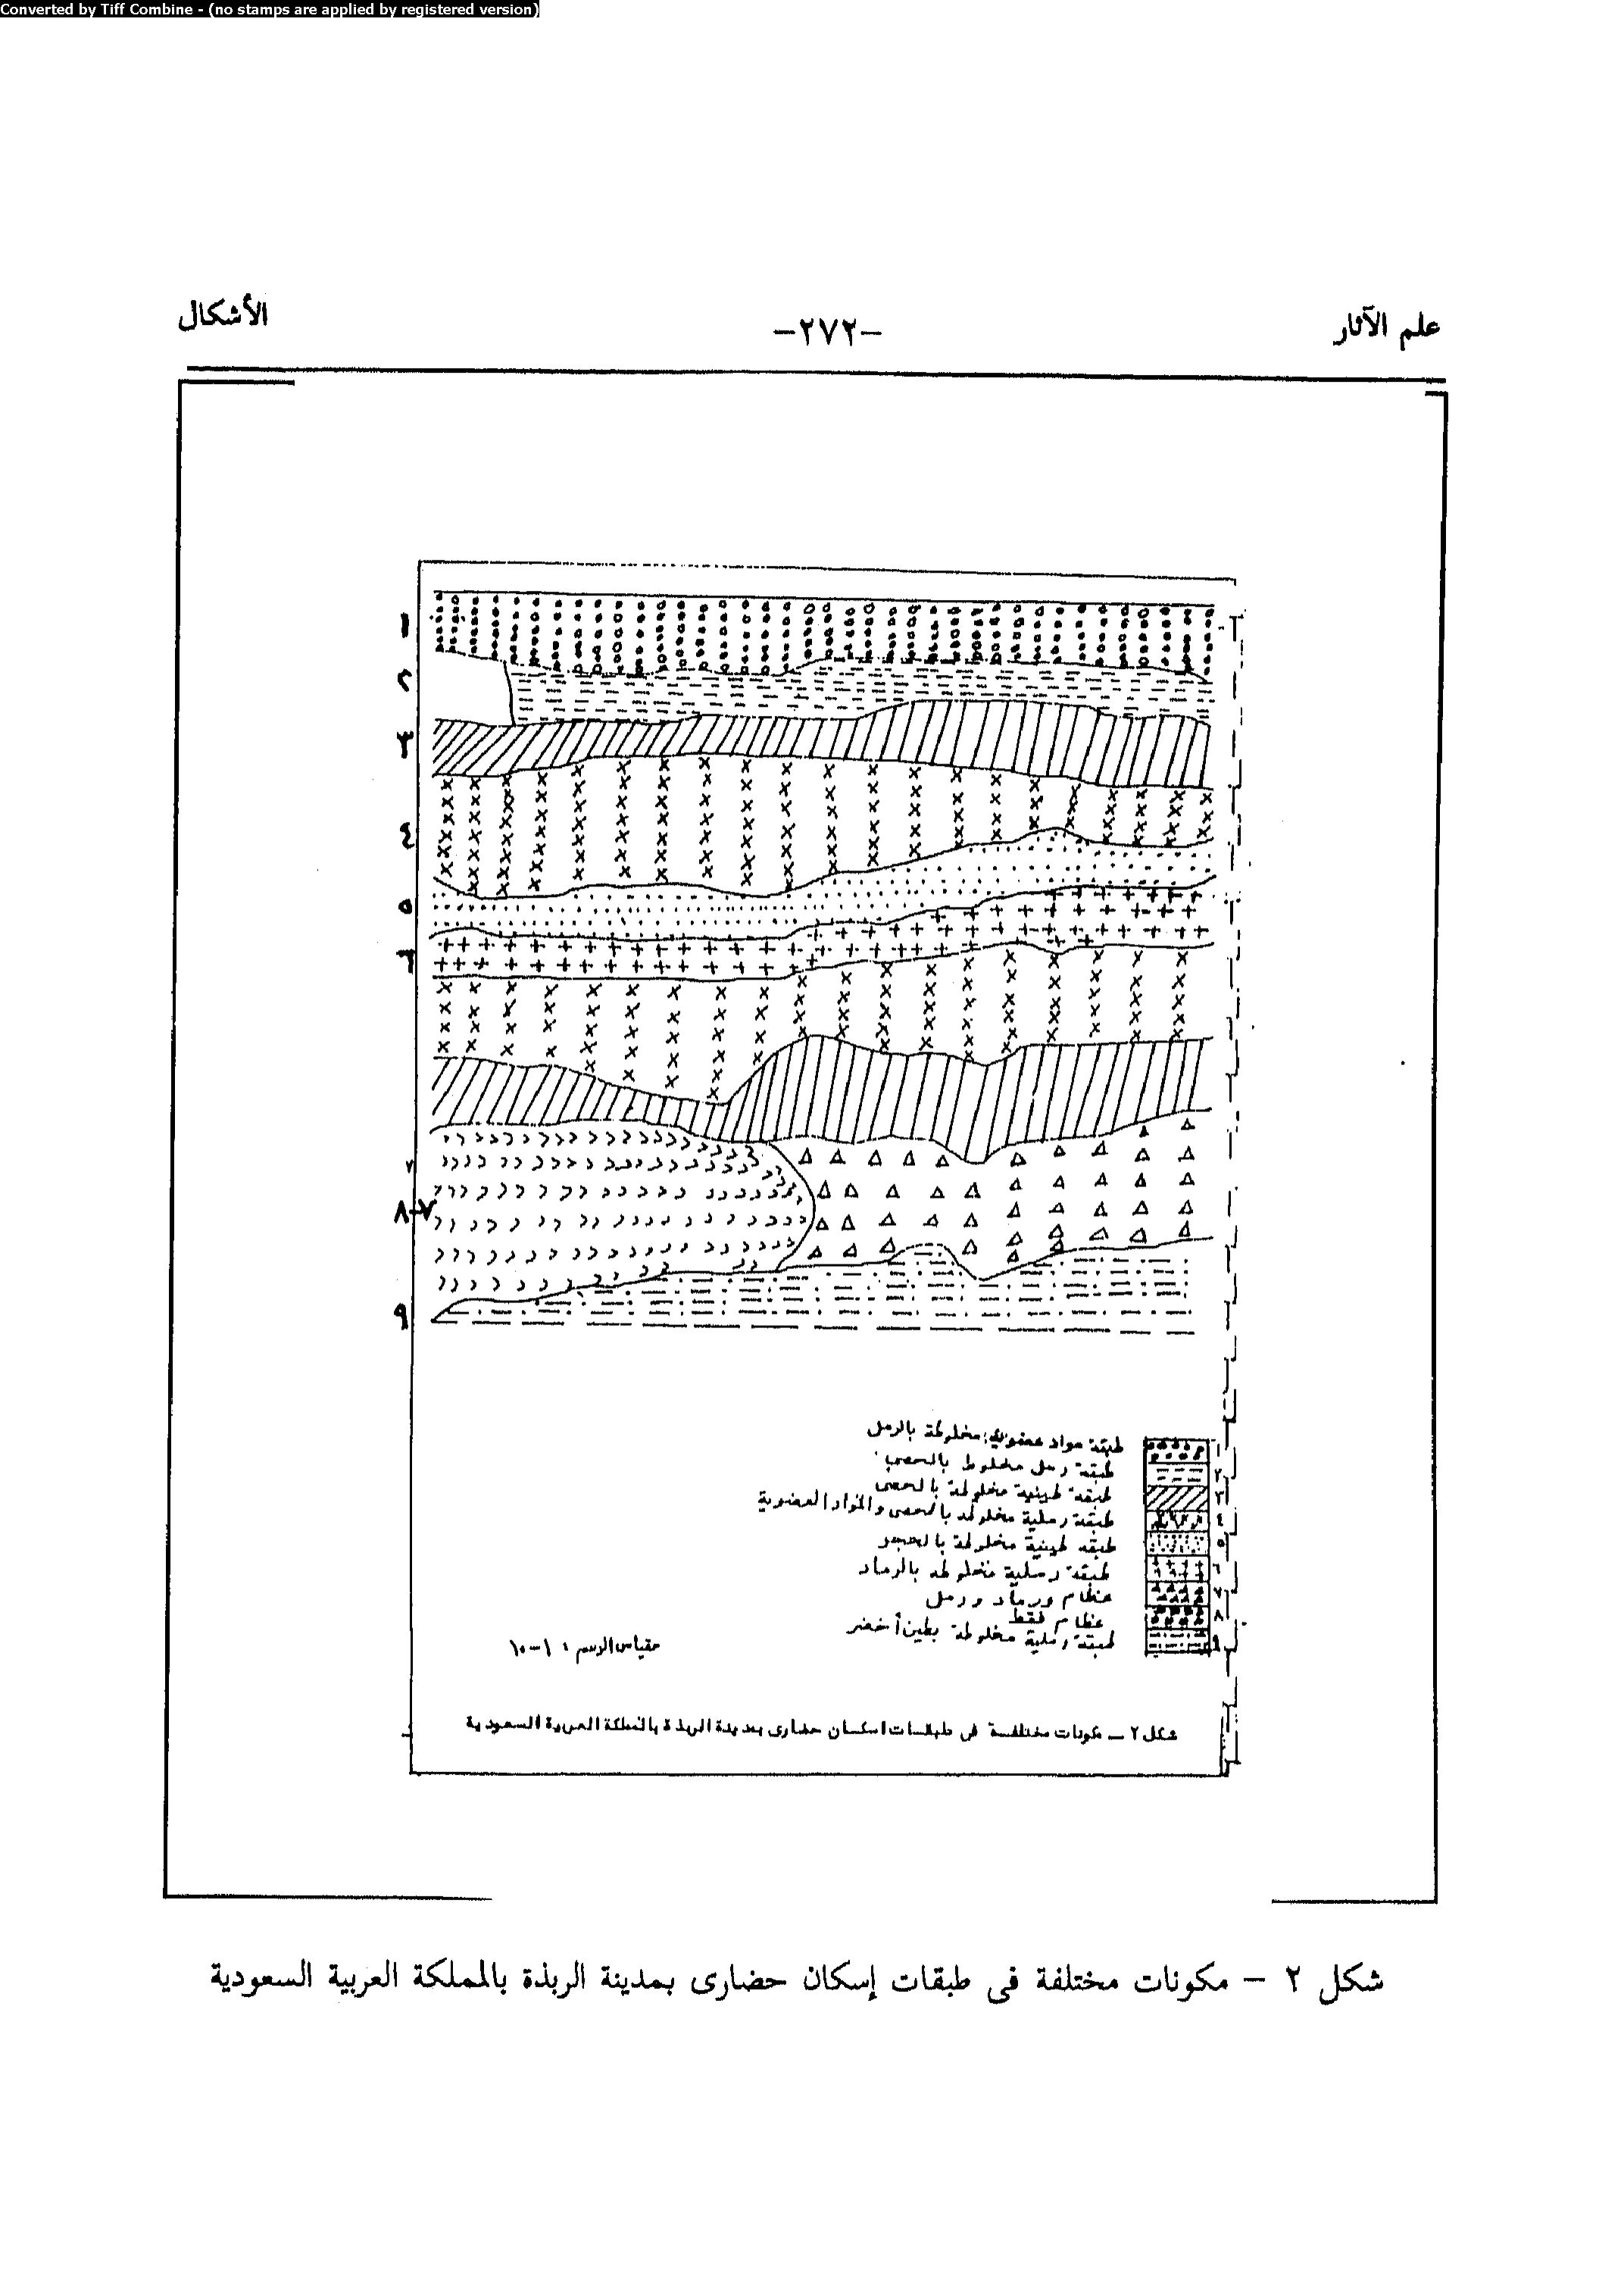 Converted by Tiff Combine - (no stamps are applied by registered version)
علم الآثار
-٢٧٢-
الأشكال
١
٢
٣
٤
٥
٦
٧
٨-٧
٩
١ طبقة مواد عضوية مخلوطة بالرمل
٢ طبقة رمل مخلوط بالحصى
٣ طبقة طينية مخلوطة بالحصى
٤ طبقة رملية مخلوطة بالحصى والمواد العضوية
٥ طبقة طينية مخلوطة بالحجر
٦ طبقة رملية مخلوطة بالرماد
٧ عظام ورماد ورمل
٨ عظام فقط
٩ طبقة رملية مخلوطة بطين أخضر
مقياس الرسم ١-١٠
شكل ٢ - مكونات مختلفة فى طبقات اسكان حضارى بمدينة الربذة بالمملكة العربية السعودية
شكل ٢ - مكونات مختلفة فى طبقات إسكان حضارى بمدينة الربذة بالمملكة العربية السعودية